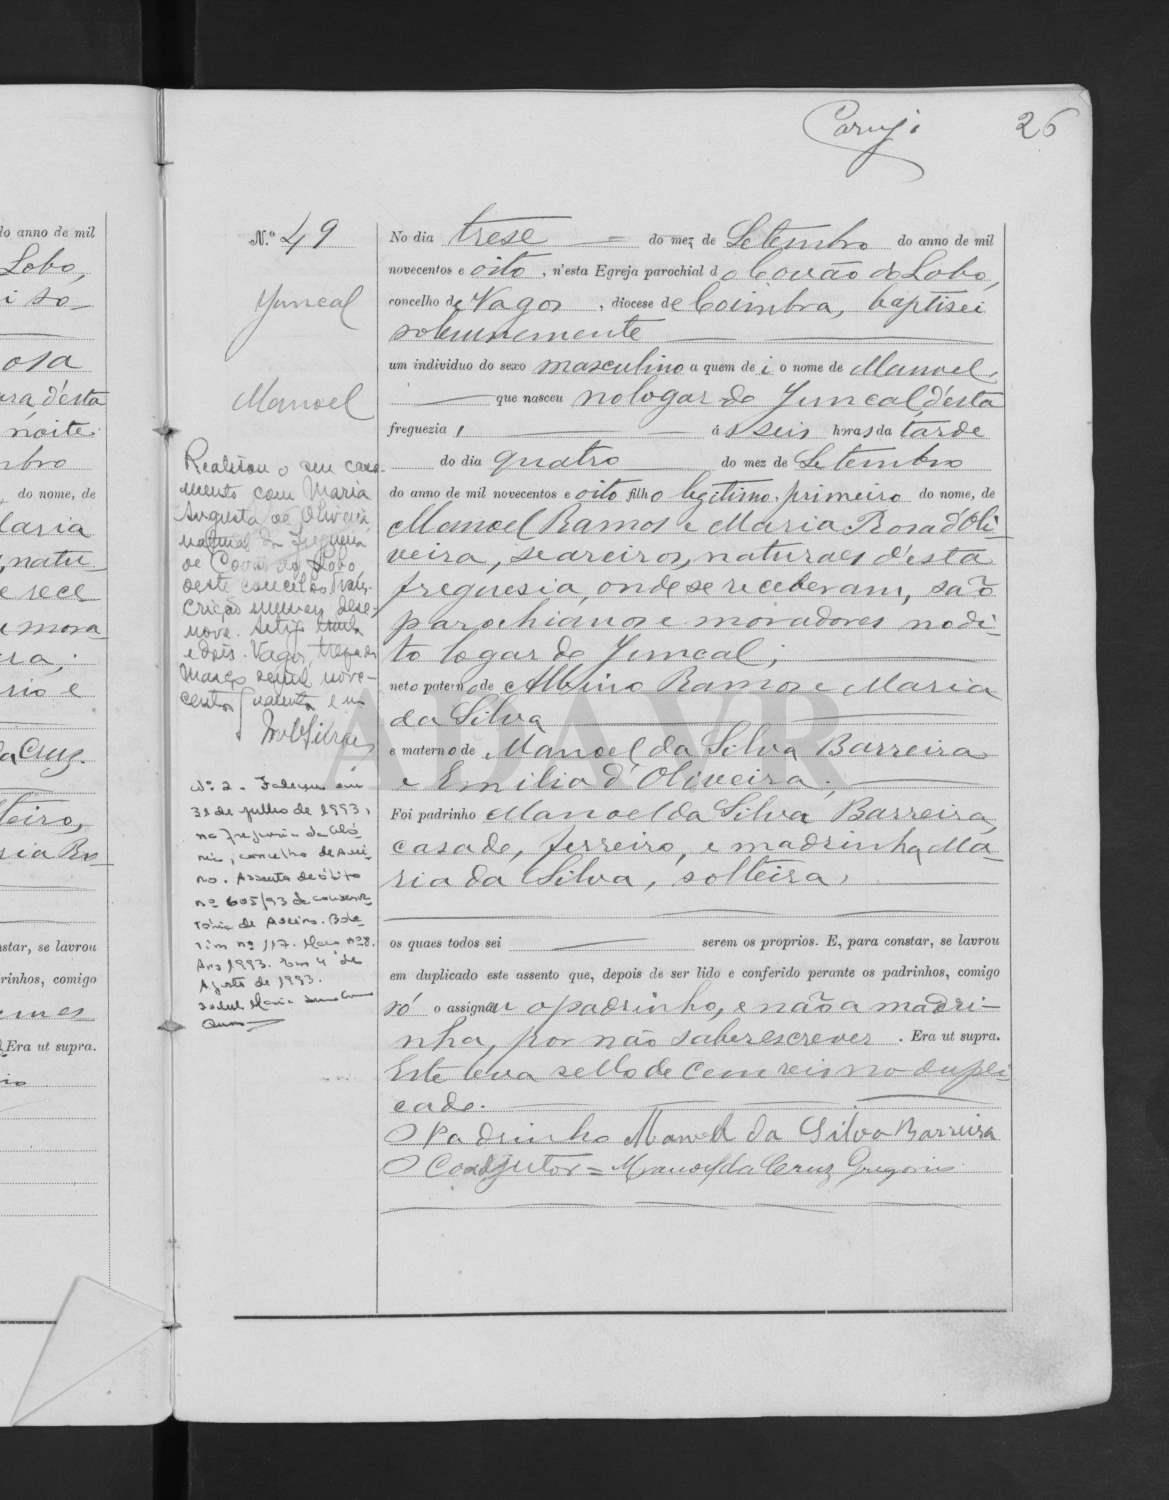 do anno de mil
Lobo,
i so-
osa
ara d'esta
noite
mbro
do nome, de
Maria
, natu-
e rece
e mora-
rio e
da Cruz.
teiro,
star, se lavrou
drinhos, comigo
Era ut supra.
26
N.º 49
Juncal
Manoel
Realisou o seu casa-
mento com Maria
Augusta de Oliveira
natural da freguesia
de Covão do Lobo,
deste concelho
dese-
nove.
e dois. Vagos, treze de
Março de mil nove-
centos quarenta e um
Nº 2 - Faleceu em
31 de julho de 1993,
na freguesia da Gló-
ria, concelho de Avei-
ro. Assento de óbito
nº 605/93 da conserva-
tória de Aveiro. Bole-
tim nº 117. Maço nº 8.
Ano 1993. Em 4 de
Agosto de 1993.
No dia trese do mez de Setembro do anno de mil
novecentos e oito, n'esta Egreja parochial do Covão do Lobo,
concelho de Vagos, diocese de Coimbra, baptisei
solemnemente
um individuo do sexo masculino a quem dei o nome de Manoel,
que nasceu no logar do Juncal, d'esta
freguezia, ás seis horas da tarde
do dia quatro do mez de Setembro
do anno de mil novecentos e oito filho legitimo, primeiro do nome, de
Manoel Ramos e Maria Rosa d'Oli-
veira, seareiros, naturaes d'esta
freguesia, onde se receberam, são
parochianos e moradores no di-
to logar do Juncal;
neto paterno de Albino Ramos e Maria
da Silva
e materno de Manoel da Silva Barreira
e Emilia d'Oliveira;
Foi padrinho Manoel da Silva Barreira,
casado, ferreiro, e madrinha Ma-
ria da Silva, solteira,
os quaes todos sei serem os proprios. E, para constar, se lavrou
em duplicado este assento que, depois de ser lido e conferido perante os padrinhos, comigo
só o assignou o padrinho, e não a madri-
nha, por não saber escrever. Era ut supra.
Este leva sello de cem reis no dupli-
cado.
O Padrinho Manoel da Silva Barreira
O Coadjutor = Manoel da Cruz Gregorio
ADAVR